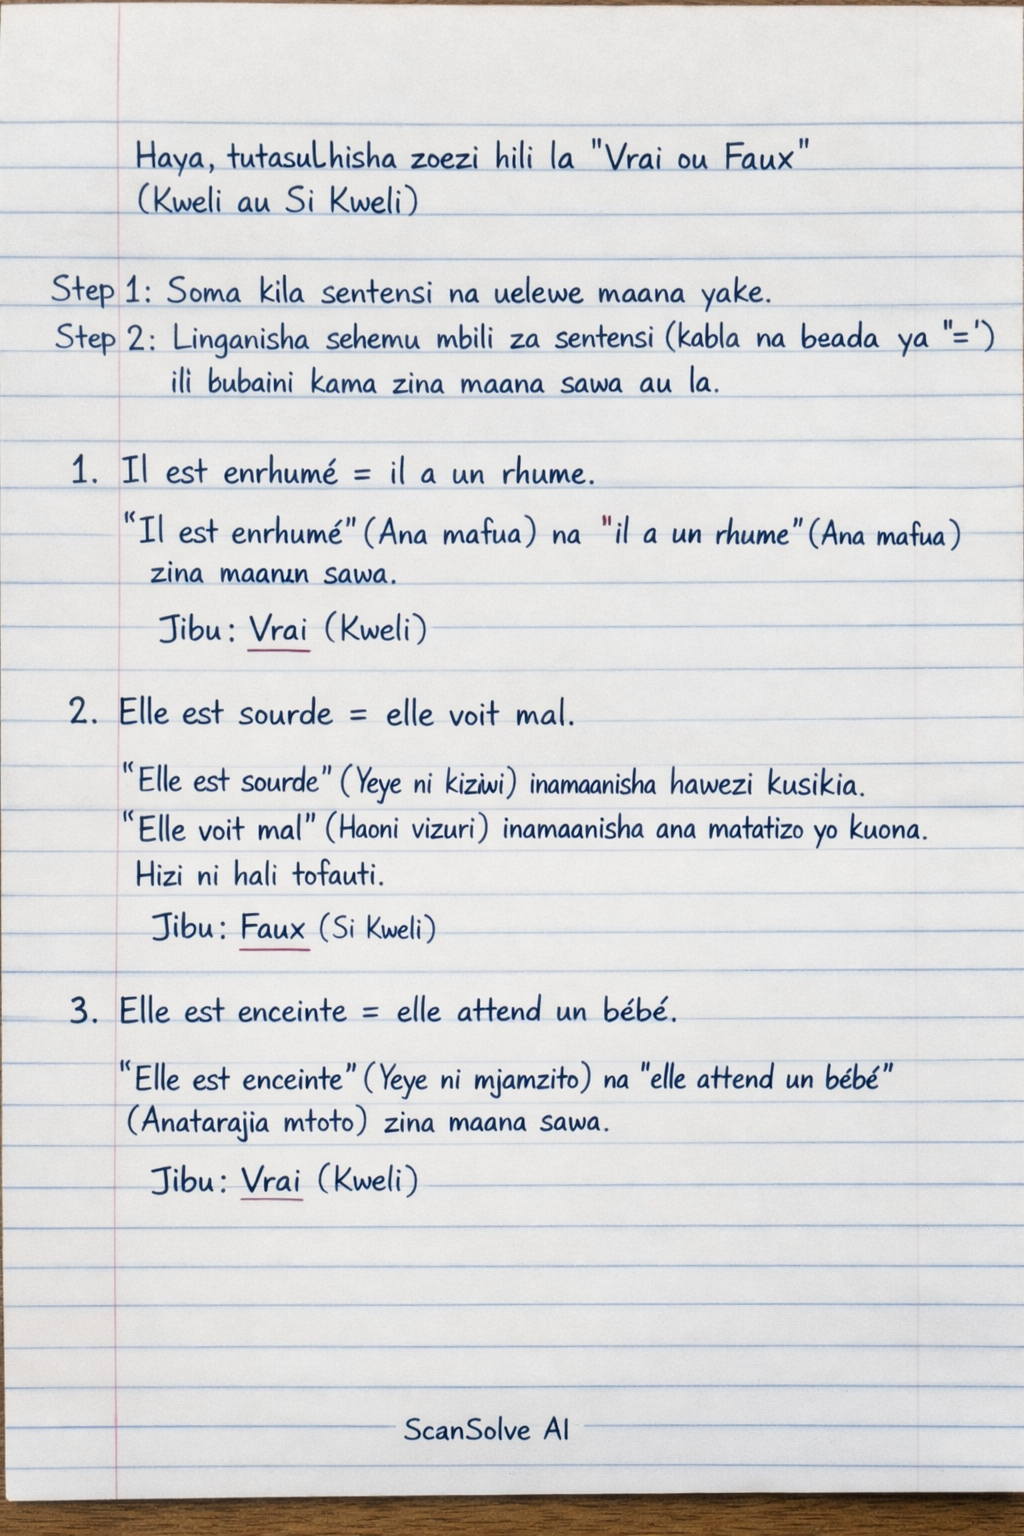 Haya, tutasulhisha zoezi hili la "Vrai ou Faux"
(Kweli au Si Kweli)
Step 1: Soma kila sentensi na uelewe maana yake.
Step 2: Linganisha sehemu mbili za sentensi (kabla na beada ya "=')
ili bubaini kama zina maana sawa au la.
1. Il est enrhumé = il a un rhume.
"Il est enrhumé" (Ana mafua) na "il a un rhume" (Ana mafua)
zina sawa.
Jibu: Vrai (Kweli)
2. Elle est sourde = elle voit mal.
"Elle est sourde" (Yeye ni kiziwi) inamaanisha hawezi kusikia.
"Elle voit mal" (Haoni vizuri) inamaanisha ana matatizo yo kuona.
Hizi ni hali tofauti.
Jibu: Faux (Si Kweli)
3. Elle est enceinte = elle attend un bébé.
"Elle est enceinte" (Yeye ni mjamzito) na "elle attend un bébé"
(Anatarajia mtoto) zina maana sawa.
Jibu: Vrai (Kweli)
ScanSolve AI